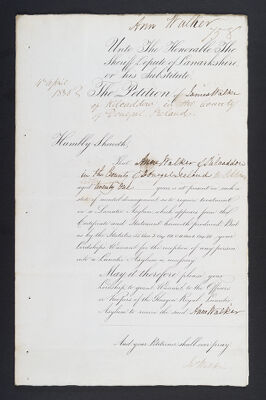 Ann Walker
Unto The Honorable The
Sheriff Depute of Lanarkshire
or his Substitute
The Petition of James Walker
of Kilcaddon in the County
of Donegal Ireland
Humbly Sheweth,
That Ann Walker of Kilcaddon
in the County of Donegal Ireland
aged Twenty One years is at present in such a
state of mental derangement as to require treatment
in a Lunatic Asylum which appears from the
Certificate and Statement herewith produced But
as by the Statutes
Lordships Warrant for the reception of any person
into a Lunatic Asylum is necessary
May it therefore please your
Lordship to grant Warrant to the Officers
or Keepers of the Glasgow Royal Lunatic
Asylum to receive the said Ann Walker
And your Petitioner shall ever pray